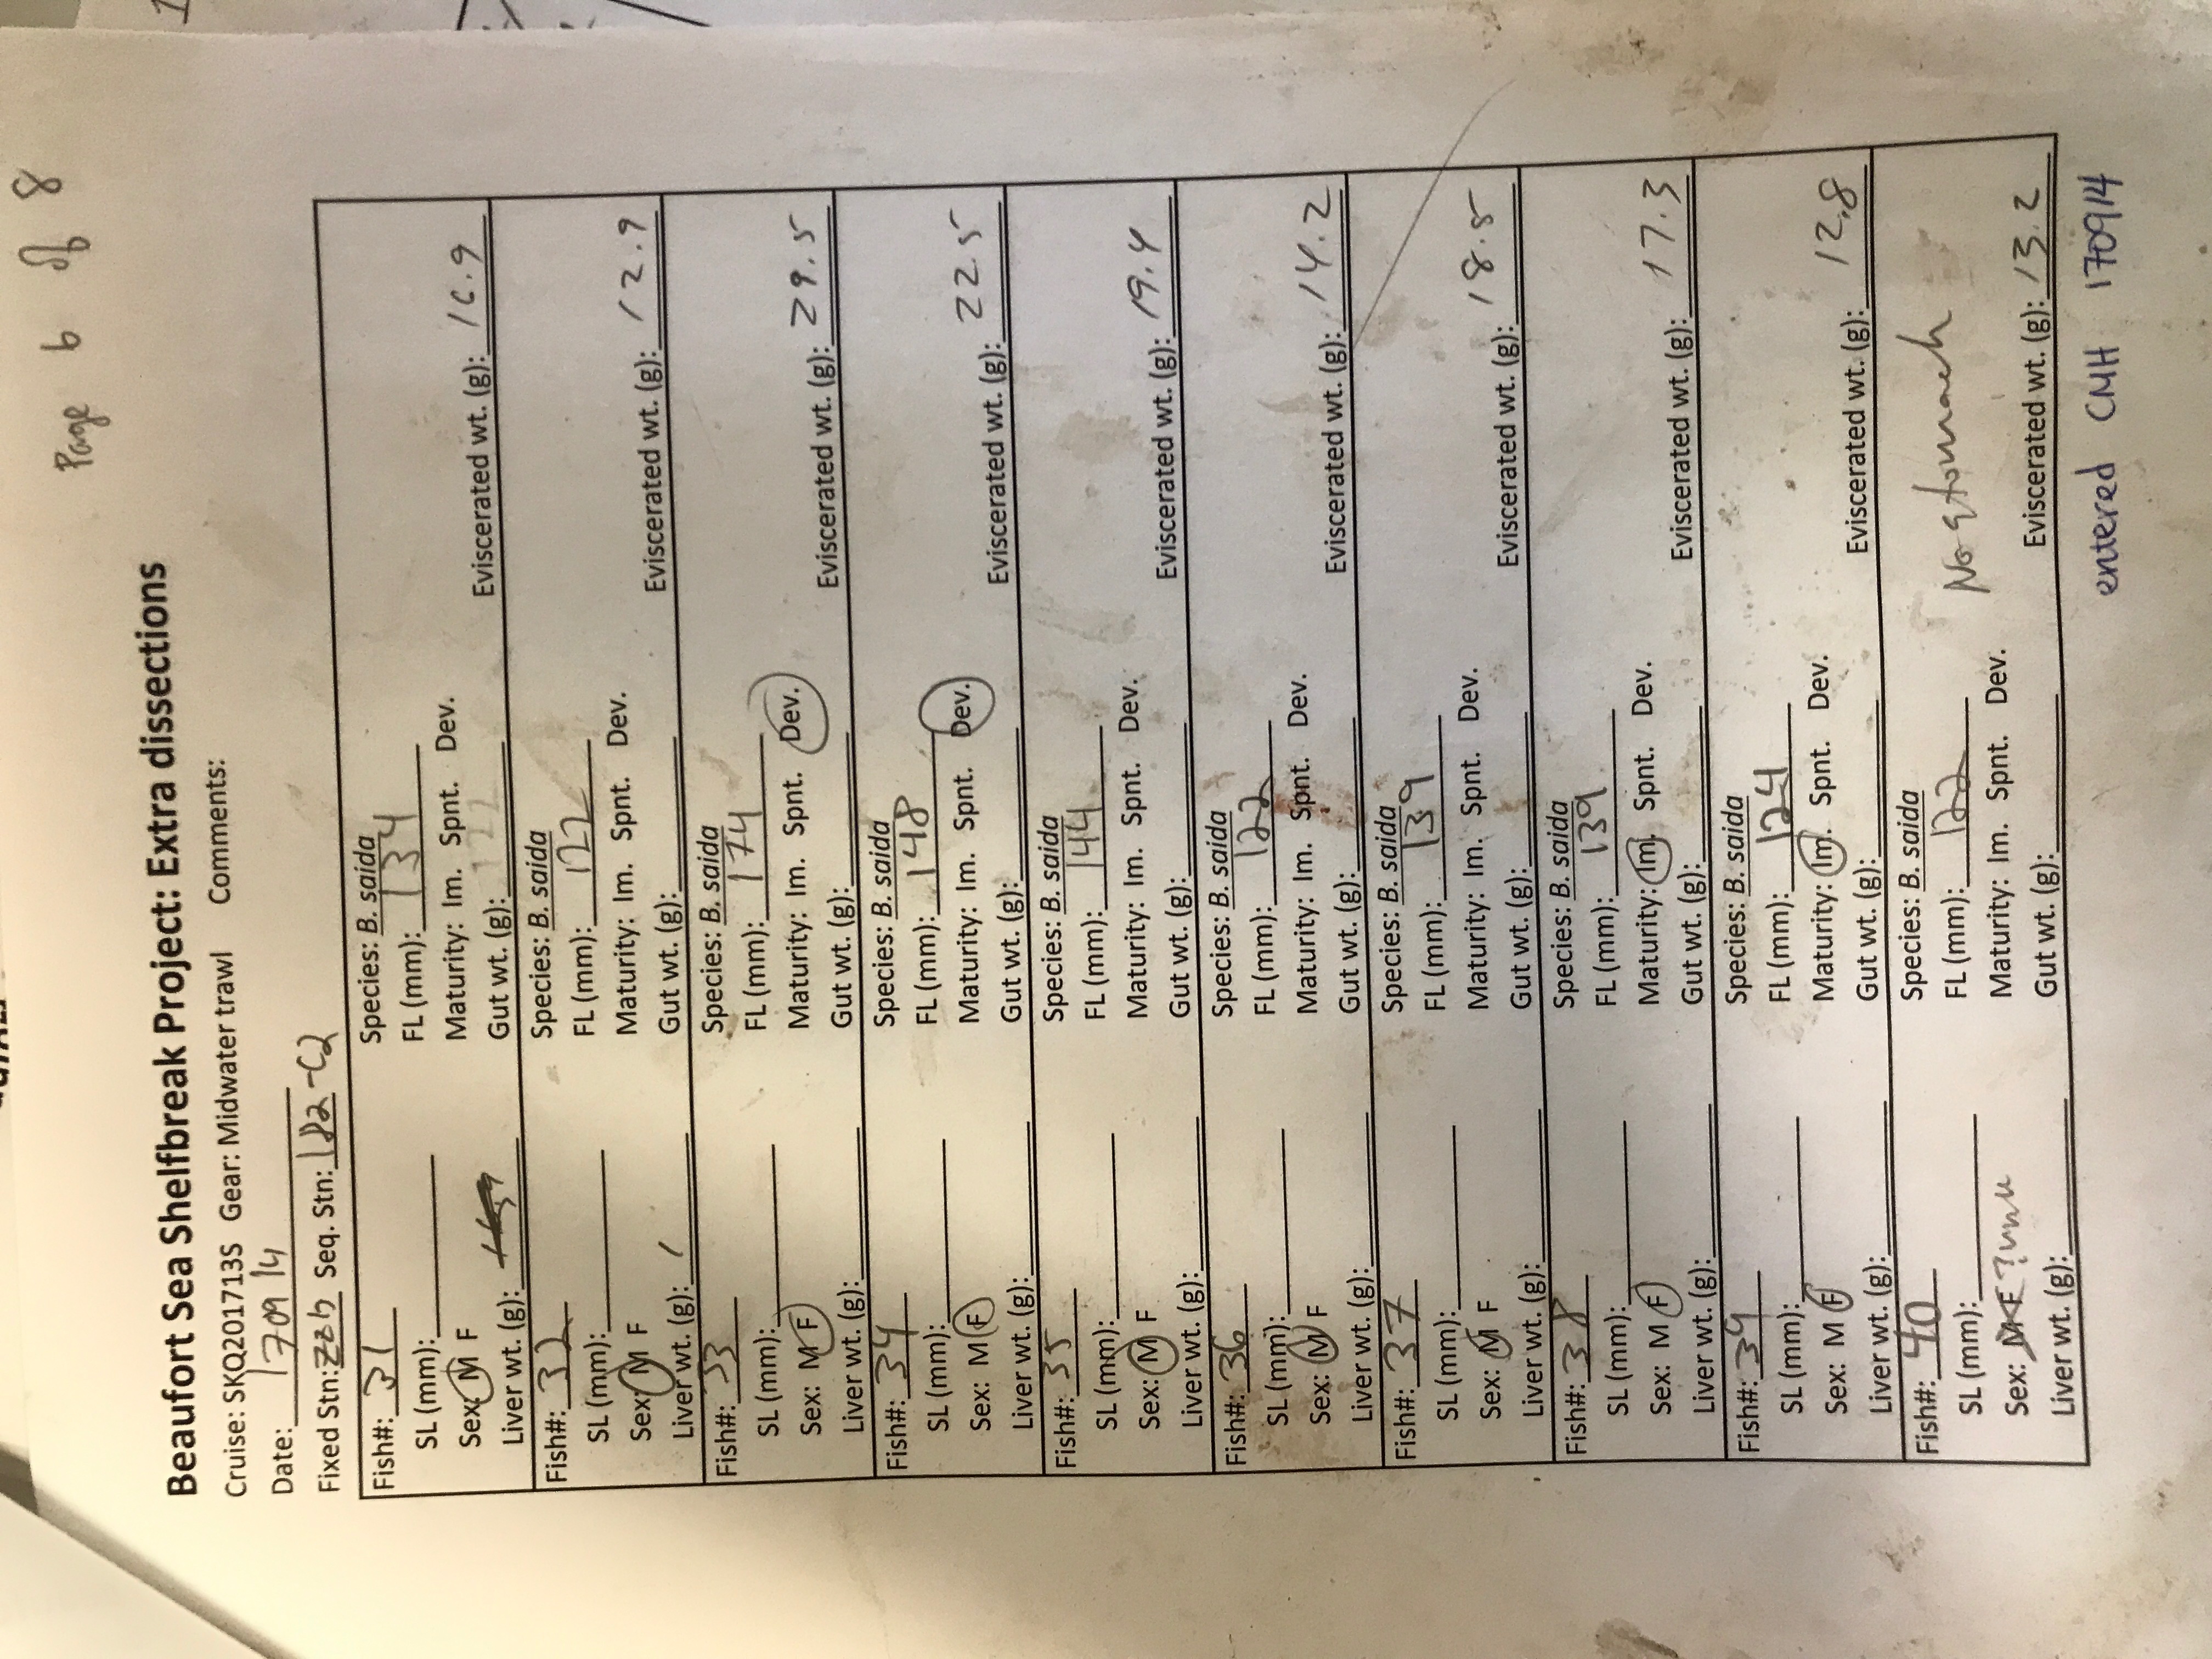 Page 6 of 8
Beaufort Sea Shelfbreak Project: Extra dissections
Cruise: SKQ201713S Gear: Midwater trawl Comments:
Date: 170914
Fixed Stn: Seq. Stn: 182-C2
Fish#: 31 Species: B. saida
SL (mm): FL (mm): 134
Sex: M F Maturity: Im. Spnt. Dev.
Liver wt. (g): Gut wt. (g): Eviscerated wt. (g): 16.9
Fish#: 32 Species: B. saida
SL (mm): FL (mm): 122
Sex: M F Maturity: Im. Spnt. Dev.
Liver wt. (g): Gut wt. (g): Eviscerated wt. (g): 12.9
Fish#: 33 Species: B. saida
SL (mm): FL (mm): 174
Sex: M F Maturity: Im. Spnt. Dev.
Liver wt. (g): Gut wt. (g): Eviscerated wt. (g): 29.5
Fish#: 34 Species: B. saida
SL (mm): FL (mm): 148
Sex: M F Maturity: Im. Spnt. Dev.
Liver wt. (g): Gut wt. (g): Eviscerated wt. (g): 22.5
Fish#: 35 Species: B. saida
SL (mm): FL (mm): 144
Sex: M F Maturity: Im. Spnt. Dev.
Liver wt. (g): Gut wt. (g): Eviscerated wt. (g): 19.4
Fish#: 36 Species: B. saida
SL (mm): FL (mm): 122
Sex: M F Maturity: Im. Spnt. Dev.
Liver wt. (g): Gut wt. (g): Eviscerated wt. (g): 14.2
Fish#: 37 Species: B. saida
SL (mm): FL (mm): 139
Sex: M F Maturity: Im. Spnt. Dev.
Liver wt. (g): Gut wt. (g): Eviscerated wt. (g): 18.5
Fish#: 38 Species: B. saida
SL (mm): FL (mm): 139
Sex: M F Maturity: Im. Spnt. Dev.
Liver wt. (g): Gut wt. (g): Eviscerated wt. (g): 17.3
Fish#: 39 Species: B. saida
SL (mm): FL (mm): 124
Sex: M F Maturity: Im. Spnt. Dev.
Liver wt. (g): Gut wt. (g): Eviscerated wt. (g): 12.8
Fish#: 40 Species: B. saida
SL (mm): FL (mm): 122 No stomach
Sex: M F Maturity: Im. Spnt. Dev.
Liver wt. (g): Gut wt. (g): Eviscerated wt. (g): 13.2
entered CMH 170914